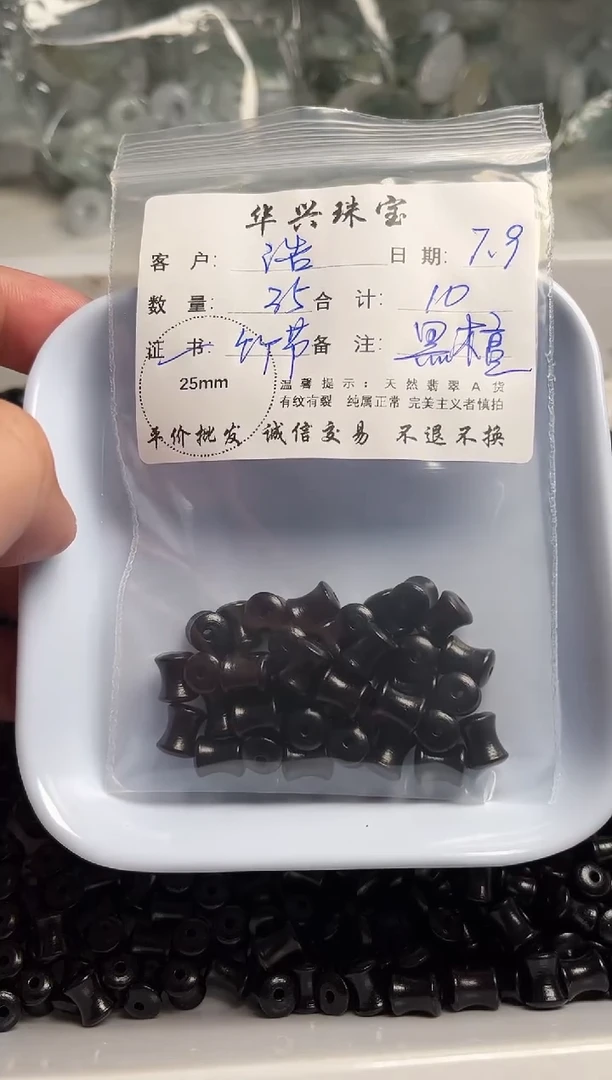 华兴珠宝
客 户: 浩 日 期: 7.9
数 量: 35 合 计: 10
证 书: 竹节 备 注: 黑檀
25mm
温馨提示: 天然翡翠A货
有纹有裂 纯属正常 完美主义者慎拍
平价批发 诚信交易 不退不换